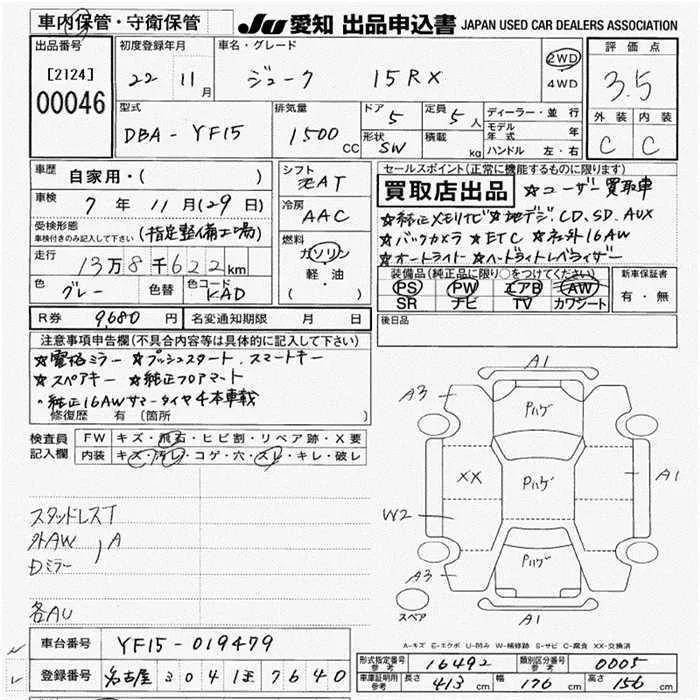 車内保管・守衛保管
JU 愛知 出品申込書 JAPAN USED CAR DEALERS ASSOCIATION
出品番号
[2124]
00046
初度登録年月
22 11月
車名・グレード
ジューク 15RX
2WD
4WD
評価点
3.5
外装 内装
C C
型式
DBA-YF15
排気量
1500cc
ドア 5
形状 SW
定員 5人
積載 kg
ディーラー・並行
モデル年式 年
ハンドル 左・右
車歴
自家用・( )
車検
7年11月(29日)
受検形態
車検付きのみ記入して下さい
(指定整備工場)
走行
13万8千622km
色
グレー
色替
色コード
KAD
シフト
AT
冷房
AAC
燃料
ガソリン
軽・油
( )
セールスポイント(正常に機能するものに限ります)
買取店出品 ☆ユーザー買取車
☆純正メモリナビ☆地デジ,CD,SD,AUX
☆バックカメラ ☆ETC ☆社外16AW
☆オートライト☆ヘッドライトレベライザー
装備品(純正品に限り○をつけてください)
PS PW エアB AW
SR ナビ TV カワシート
新車保証書
有・無
R券 9,680円
名変通知期限 月 日
後日品
注意事項申告欄(不具合内容等は具体的に記入して下さい)
☆電格ミラー ☆プッシュスタート,スマートキー
☆スペアキー ☆純正フロアマート
。純正16AWサマータイヤ4本車載
修復歴 有 (箇所
検査員記入欄
FW キズ・飛石・ヒビ割・リペア跡・X要
内装 キズ・汚レ・コゲ・穴・スレ・キレ・破レ
スタッドレスT
外AW
Dミラー
A
各AU
A1
A3
Pハゲ
XX
Pハゲ
A1
W2
Pハゲ
A3
A1
スペア
A-キズ E-エクボ U-凹み W-補修跡 S-サビ C-腐食 XX-交換済
車台番号 YF15-019479
登録番号 名古屋 304 7640
形式指定番号参考 16492
類別区分番号参考 0005
車庫証明用参考 長さ 413cm 幅 176cm 高さ 156cm